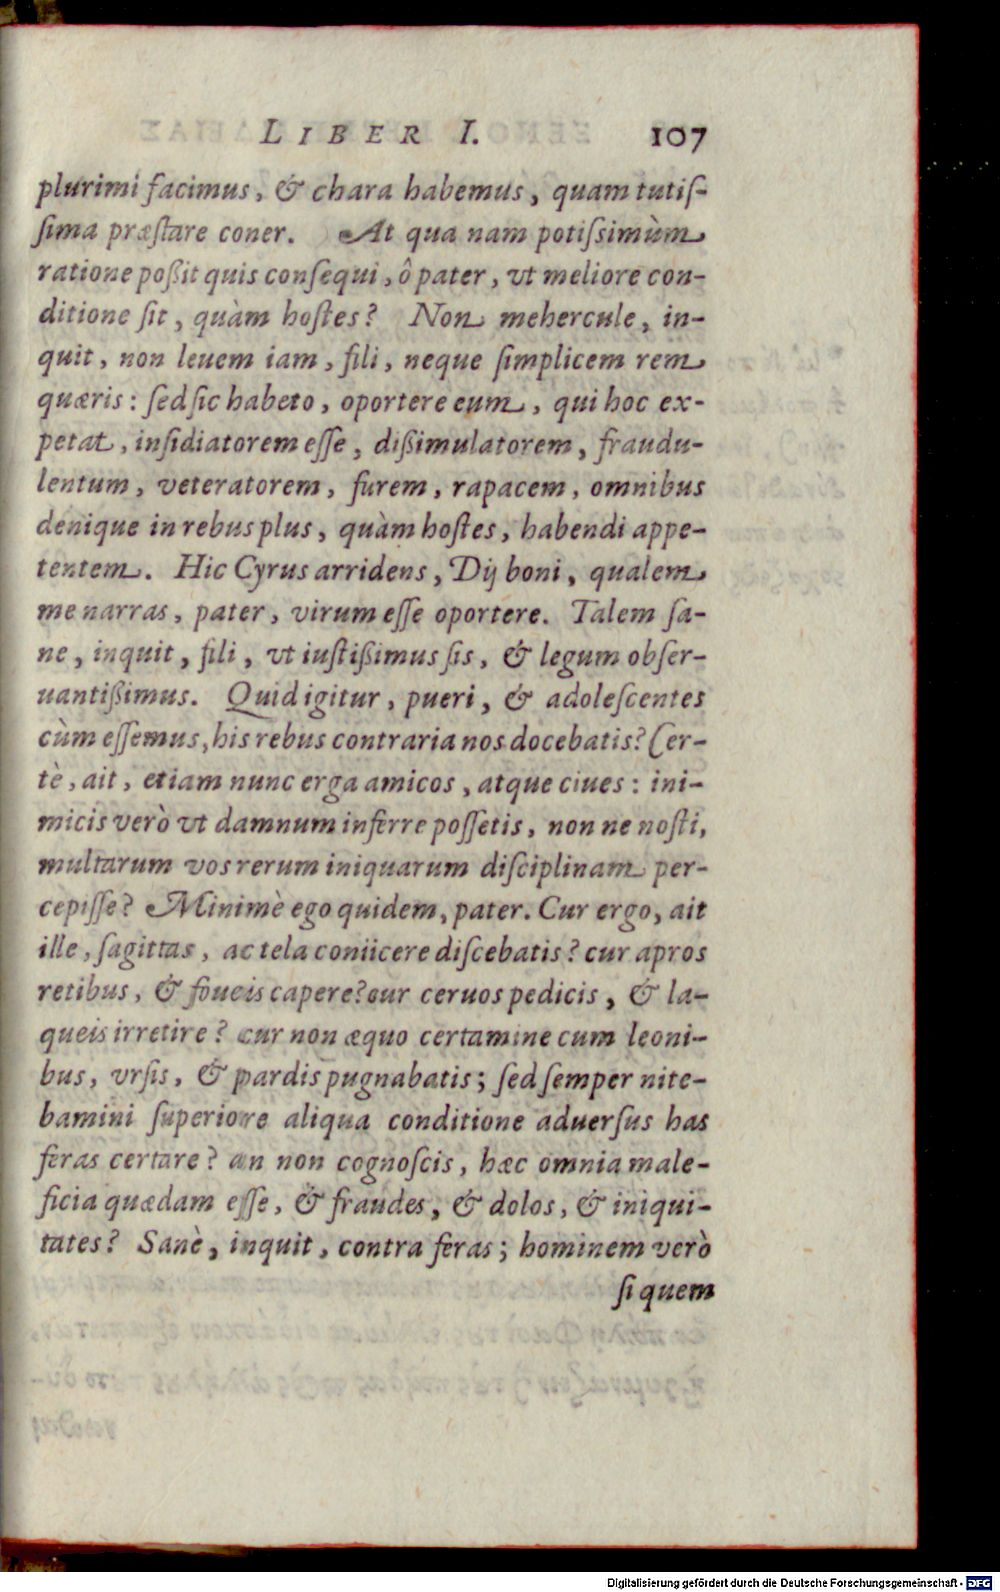 LIBER I. 107
plurimi facimus, & chara habemus, quam tutiſ-
ſima præſtare coner. At qua nam potiſsimùm
ratione poßit quis conſequi, ô pater, vt meliore con-
ditione ſit, quàm hoſtes? Non mehercule, in-
quit, non leuem iam, fili, neque ſimplicem rem
quæris: ſed ſic habeto, oportere eum, qui hoc ex-
petat, inſidiatorem eſſe, dißimulatorem, fraudu-
lentum, veteratorem, furem, rapacem, omnibus
denique in rebus plus, quàm hoſtes, habendi appe-
tentem. Hic Cyrus arridens, Dij boni, qualem
me narras, pater, virum eſſe oportere. Talem ſa-
ne, inquit, fili, vt iuſtißimus ſis, & legum obſer-
uantißimus. Quid igitur, pueri, & adoleſcentes
cùm eſſemus, his rebus contraria nos docebatis? Cer-
tè, ait, etiam nunc erga amicos, atque ciues: ini-
micis verò vt damnum inferre poſſetis, non ne noſti,
multarum vos rerum iniquarum diſciplinam per-
cepiſſe? Minimè ego quidem, pater. Cur ergo, ait
ille, ſagittas, ac tela coniicere diſcebatis? cur apros
retibus, & foueis capere? cur ceruos pedicis, & la-
queis irretire? cur non æquo certamine cum leoni-
bus, vrſis, & pardis pugnabatis; ſed ſemper nite-
bamini ſuperiore aliqua conditione aduerſus has
feras certare? an non cognoſcis, hæc omnia male-
ficia quædam eſſe, & fraudes, & dolos, & iniqui-
tates? Sanè, inquit, contra feras; hominem verò
ſi quem
Digitalisierung gefördert durch die Deutsche Forschungsgemeinschaft - DFG